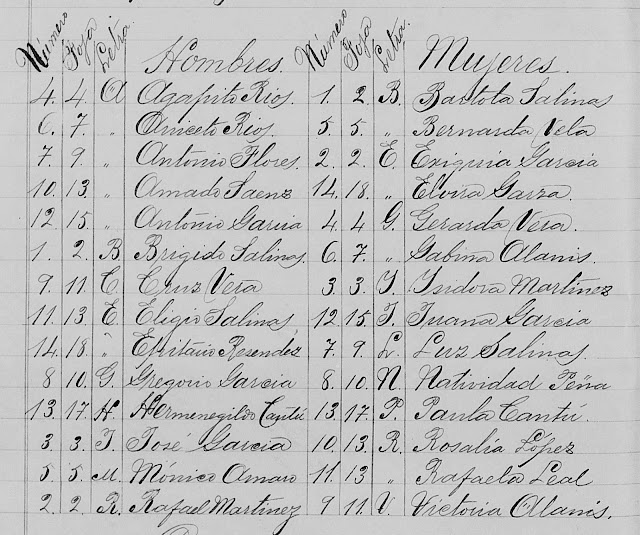 Número Foja Letra. Hombres. Número Foja Letra. Mujeres.
4. 4. A Agapito Rios. 1. 2. B. Bartola Salinas
6. 7. " Aniceto Rios. 5. 5. " Bernarda Vela
7. 9. " Antonio Flores. 2. 2. E. Exiquia Garcia
10. 13. " Amado Saenz 14. 18. " Elvira Garza.
12. 15. " Antonio Garcia 4. 4. G. Gerarda Vera.
1. 2. B. Brigido Salinas. 6. 7. " Gabina Alanis.
9. 11. C. Cruz Vera 3. 3. I. Isidora Martinez
11. 13. E. Eligio Salinas 12. 15. J. Juana Garcia
14. 18. " Resendez 7. 9. L. Luz Salinas.
8 10. G. Gregorio Garcia 8. 10. N. Natividad Peña
13. 17. H. Hermenegildo Cantú 13. 17. P. Paula Cantú.
3. 3. J. José Garcia 10. 13. R. Rosalía López
5. 5. M. Mónico Amaro 11. 13 " Rafaela Leal
2. 2. R. Rafael Martinez 9 11. V. Victoria Alanis.